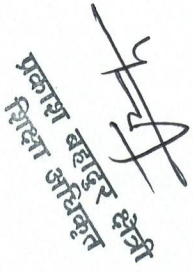 प्रकाश बहादुर क्षेत्री
शिक्षा अधिकृत